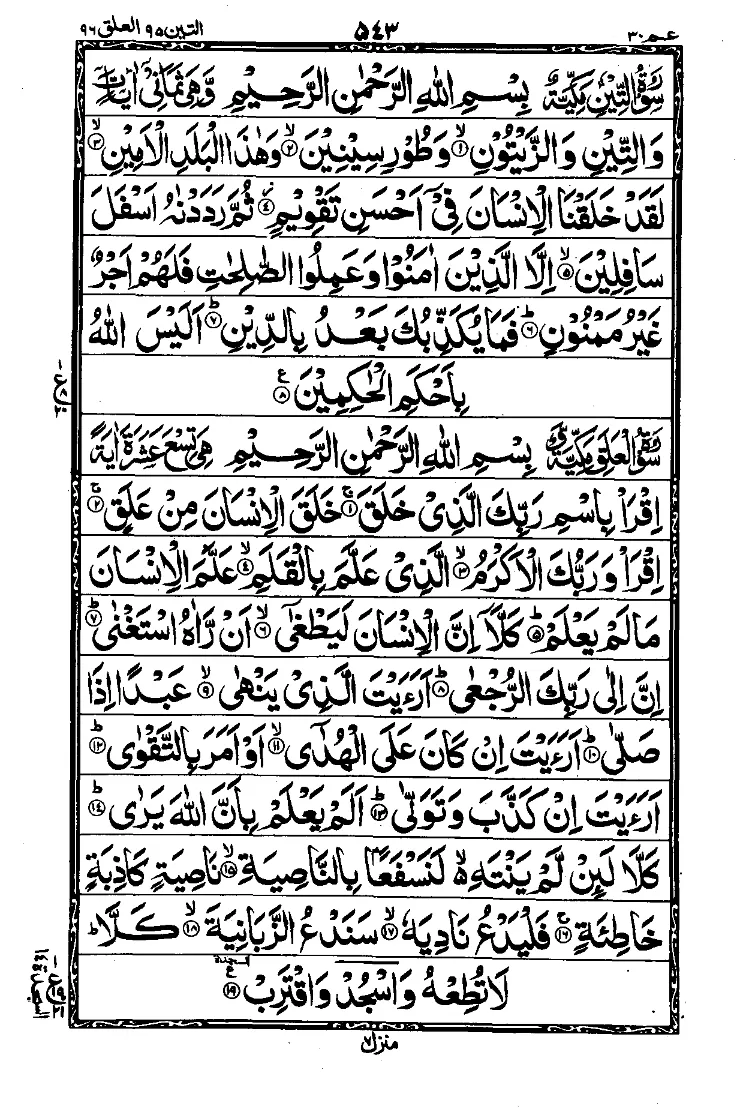 عـم ٣٠
٥٤٣
التين ٩٥ العلق ٩٦
سُوْرَةُ التِّيْنِ مَكِّيَّةٌ بِسْمِ اللهِ الرَّحْمٰنِ الرَّحِيْمِ وَّهِىَ ثَمَانِىْ اٰيَاتٍ
وَالتِّيْنِ وَالزَّيْتُوْنِ ۙ‏﴿۱﴾ وَطُوْرِ سِيْنِيْنَ ۙ‏﴿۲﴾ وَهٰذَا الْبَلَدِ الْاَمِيْنِ ۙ‏﴿۳﴾
لَقَدْ خَلَقْنَا الْاِنْسَانَ فِىْۤ اَحْسَنِ تَقْوِيْمٍ ﴿۴﴾ ثُمَّ رَدَدْنٰهُ اَسْفَلَ
سَافِلِيْنَ ۙ‏﴿۵﴾ اِلَّا الَّذِيْنَ اٰمَنُوْا وَعَمِلُوا الصّٰلِحٰتِ فَلَهُمْ اَجْرٌ
غَيْرُ مَمْنُوْنٍ ؕ‏﴿۶﴾ فَمَا يُكَذِّبُكَ بَعْدُ بِالدِّيْنِ ؕ‏﴿۷﴾ اَلَيْسَ اللهُ
بِاَحْكَمِ الْحٰكِمِيْنَ ﴿۸﴾ ع
سُوْرَةُ الْعَلَقِ مَكِّيَّةٌ بِسْمِ اللهِ الرَّحْمٰنِ الرَّحِيْمِ هِىَ تِسْعَ عَشَرَةَ اٰيَةً
اِقْرَاْ بِاسْمِ رَبِّكَ الَّذِىْ خَلَقَ ۚ‏﴿۱﴾ خَلَقَ الْاِنْسَانَ مِنْ عَلَقٍ ۚ‏﴿۲﴾
اِقْرَاْ وَرَبُّكَ الْاَكْرَمُ ۙ‏﴿۳﴾ الَّذِىْ عَلَّمَ بِالْقَلَمِ ۙ‏﴿۴﴾ عَلَّمَ الْاِنْسَانَ
مَا لَمْ يَعْلَمْ ؕ‏﴿۵﴾ كَلَّاۤ اِنَّ الْاِنْسَانَ لَيَطْغٰٓى ۙ‏﴿۶﴾ اَنْ رَّاٰهُ اسْتَغْنٰى ؕ‏﴿۷﴾
اِنَّ اِلٰى رَبِّكَ الرُّجْعٰى ؕ‏﴿۸﴾ اَرَءَيْتَ الَّذِىْ يَنْهٰى ۙ‏﴿۹﴾ عَبْدًا اِذَا
صَلّٰى ؕ‏﴿۱۰﴾ اَرَءَيْتَ اِنْ كَانَ عَلَى الْهُدٰٓى ۙ‏﴿۱۱﴾ اَوْ اَمَرَ بِالتَّقْوٰى ؕ‏﴿۱۲﴾
اَرَءَيْتَ اِنْ كَذَّبَ وَتَوَلّٰى ؕ‏﴿۱۳﴾ اَلَمْ يَعْلَمْ بِاَنَّ اللهَ يَرٰى ؕ‏﴿۱۴﴾
كَلَّا لَئِنْ لَّمْ يَنْتَهِ ۙ۬ لَنَسْفَعًاۢ بِالنَّاصِيَةِ ۙ‏﴿۱۵﴾ نَاصِيَةٍ كَاذِبَةٍ
خَاطِئَةٍ ۚ‏﴿۱۶﴾ فَلْيَدْعُ نَادِيَهٗ ۙ‏﴿۱۷﴾ سَنَدْعُ الزَّبَانِيَةَ ۙ‏﴿۱۸﴾ كَلَّا ؕ
لَا تُطِعْهُ وَاسْجُدْ وَاقْتَرِبْ ﴿۱۹﴾ السجدة ع
منزل ٧